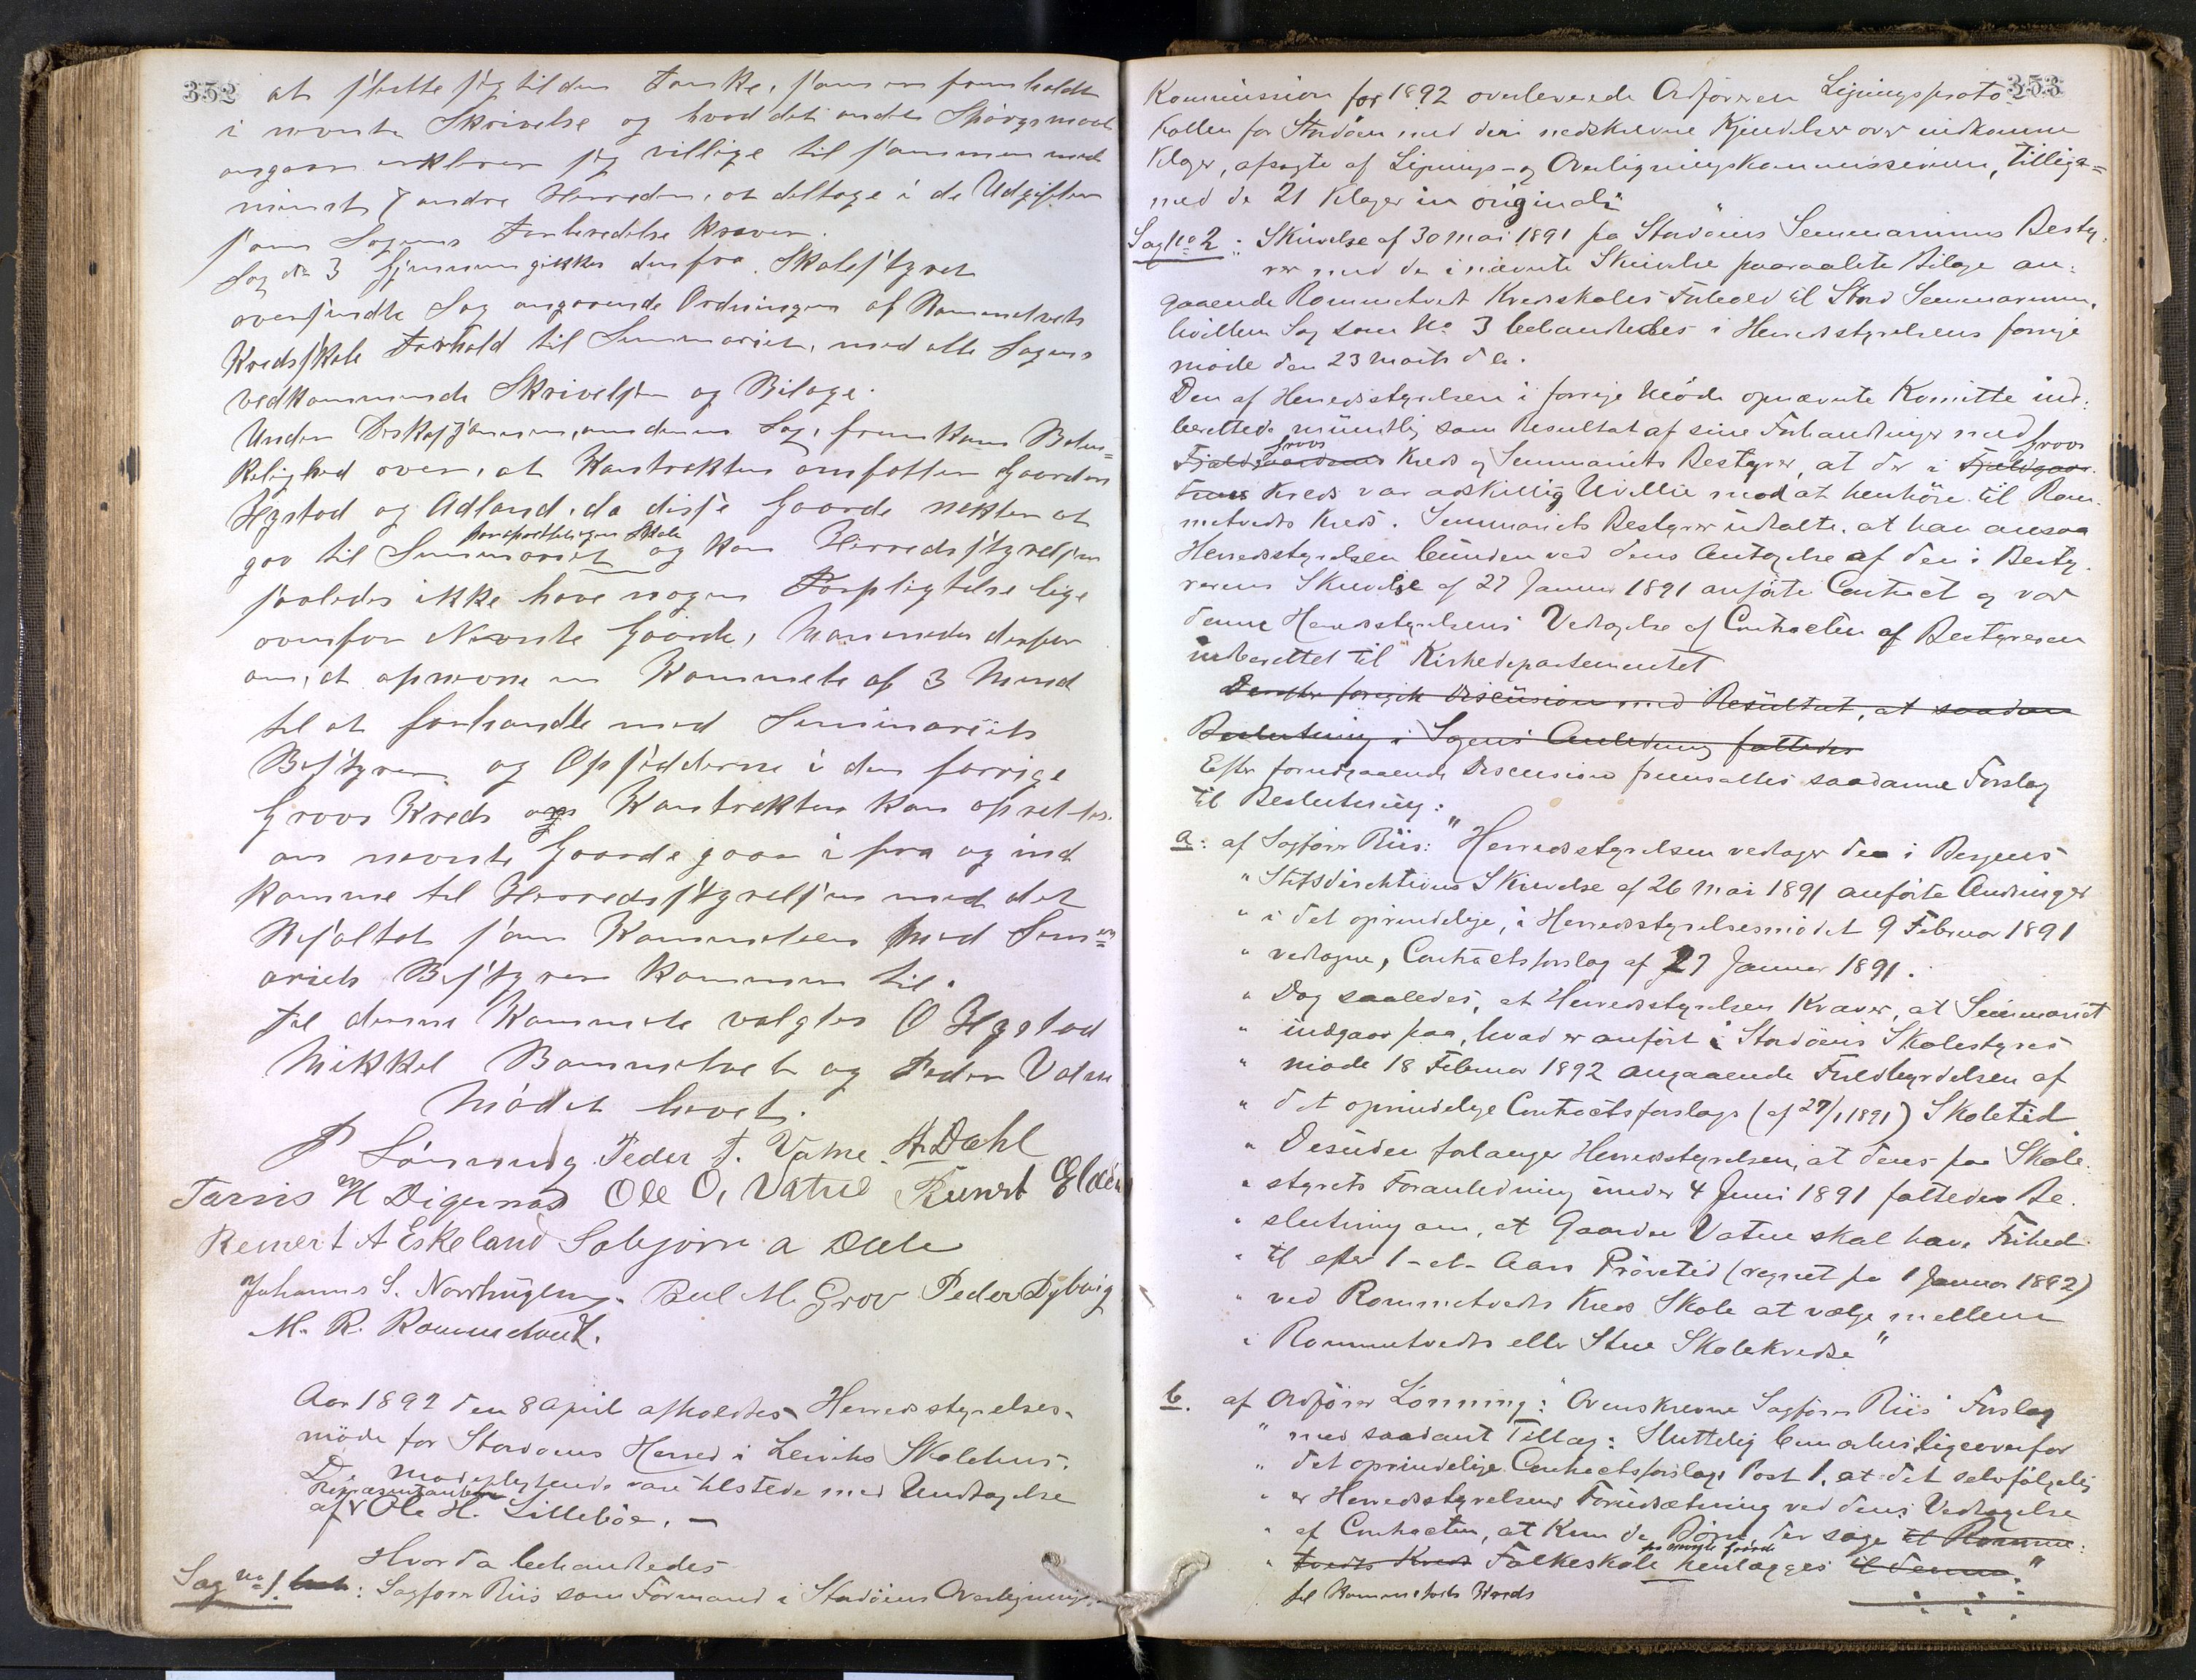 352
at slutte sig til den Tanke, som er fremholdt
i nevnte Skrivelse og hvad det andet Spørgsmaal
angaar erklerer sig villige til sammen med
minst 7 andre Herreder, at deltage i de Udgifter
som Sagens Forberedelse krever.
Sag No 3 Gjennemgikkes den fra Skolestyret
oversendte Sag angaaende Ordningen af Rommetveits
Kredsskole Forhold til Seminariet, med alle Sagens
vedkommende Skrivelser og Bilage.
Under Diskussjonen, om denne Sag, fremkom Beten=
kelighed over, at Kontrakten omfatter Gaarden
Hystad og Adland, da disse Gaarde nekter at
gaa til Seminariet og kan Herredsstyrelsen
saaledes ikke have nogen Forpligtelse lige
overfor Nevnte Gaarde, Man enedes derfor
om, at opnevne en Kommete af 3 Mend
til at forhandle med Seminariets
Bestyrer og Opsidderne i den forrige
Grovs Kreds om Kontrakten kan oprettes
om nevnte Gaarde gaar i fra og ind
komme til Herredsstyrelsen med det
Resultat som Kommeteen med Semin=
ariets Bestyrer kommer til.
Til denne Kommete valgtes O Hystad
Mikkel Rommetveit og Peder Vatne
Mødet hevet.
P Lønning. Peder T. Vatne. H. Dahl
H Digernes Ole O. Vatne
Reinert A Eskeland Salgjerm a Dale
Johannes S. Nordhuglen. Poul M. Grov Peder Dybvig
M. R. Rommetveit.
Aar 1892 den 8 April afholdtes Herredsstyrelses-
møde for Stordøens Herred i Lerviks Skolehus.
De mødepligtende
Repræsentanter vare tilstede med Undtagelse
af Ole H. Lillebøe. —
Hvorda behandledes
Sag No 1. : Sagfører Riis som Formand i Stordøens Overlignings-
353
Kommission for 1892 overleverede Ordføreren Ligningsproto=
kollen for Stordøen med deri nedskrevne Kjendelser over indkomne
Klager, afsagte af Lignings- og Overligningskommissionen, tillige=
med de 21 Klager in originali
Sag No 2: Skrivelse af 30 mai 1891 fra Stordøens Seminariums Besty=
rer med de i nævnte Skrivelse paaraabte Bilage an=
gaaende Rommetvedt Kredsskoles Forhold til Stord Seminarium,
hvilken Sag som No 3 behandledes i Herredsstyrelsens forrige
møde den 23 marts d. A.
Den af Herredsstyrelsen i forrige Møde opnævnte Komitte ind=
berettede mundtlig som Resultat af sine Forhandlinger med
Grovs Grovs
Fjeldgaardens Kreds og Seminariets Bestyrer, at der i Fjeldgaar=
dens Kreds var adskillig Uvillie mod at henhøre til Rom=
metvedts Kreds. Seminariets Bestyrer udtalte, at han ansaa
Herredsstyrelsen bunden ved dens Antagelse af den i Besty=
rerens Skrivelse af 27 Januar 1891 anførte Contract og var
denne Herredsstyrelsens Vedtagelse af Contracten af Bestyreren
indberettet til Kirkedepartementet
Derefter foregik Discussion med Resultat, at saadan
Beslutning i Sagens Anledning fattedes
Efter forudgaaende Discussion fremsattes saadanne Forslag
til Beslutning:
a: af Sagfører Riis: "Herredsstyrelsen vedtager de i Bergens
" Stiftsdirektions Skrivelse af 26 mai 1891 anførte Ændringer
" i det oprindelige, i Herredsstyrelsesmødet 9 Februar 1891
" vedtagne, Contractsforslag af 27 Januar 1891.
" Dog saaledes, at Herredsstyrelsen kræver, at Seminariet
" indgaar paa, hvad er anført i Stordøens Skolestyres
" møde 18 Februar 1892 angaaende Fuldbyrdelsen af
" det oprindelige Contractsforslags (af 27/1 1891) Skoletid.
" Desuden forlanger Herredsstyrelsen, at dens paa Skole=
" styrets Foranledning under 4 Juni 1891 fattede Be=
" slutning om, at Gaarden Vatne skal have Frihed
" til efter 1-et-Aars Prøvetid (regnet fra 1 Januar 1892)
" ved Rommetvedts Kreds Skole at vælge mellem
" Rommetvedts eller Stue Skolekredse"
b. af Ordfører Lønning: "Ovenskrevne Sagfører Riis' Forslag
" med saadant Tillæg: Sluttelig bemærkes ligeoverfor
" det oprindelige Contractsforslags Post 1, at det selvfølgelig
" er Herredsstyrelsens Forudsætning ved dens Vedtagelse
" af Contracten, at kun de Børn, der søge til Romme=
fra nævnte Gaarde
" tvedts Kreds Folkeskole henlægges til denne."
til Rommetveits Kreds